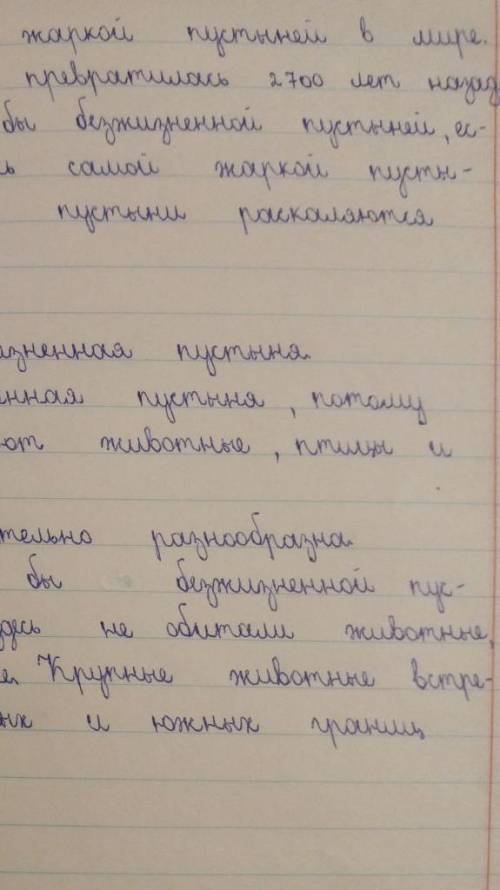 жаркой пустыней в мире.
превратилась 2700 лет назад
бы безжизненной пустыней, ес-
ь самой жаркой пусты-
пустыни раскаляются
зненная пустыня.
нная пустыня, потому
ют животные, птицы и
тельно разнообразна.
бы безжизненной пус-
здесь не обитали животные,
е. Крупные животные встре-
ых и южных границ